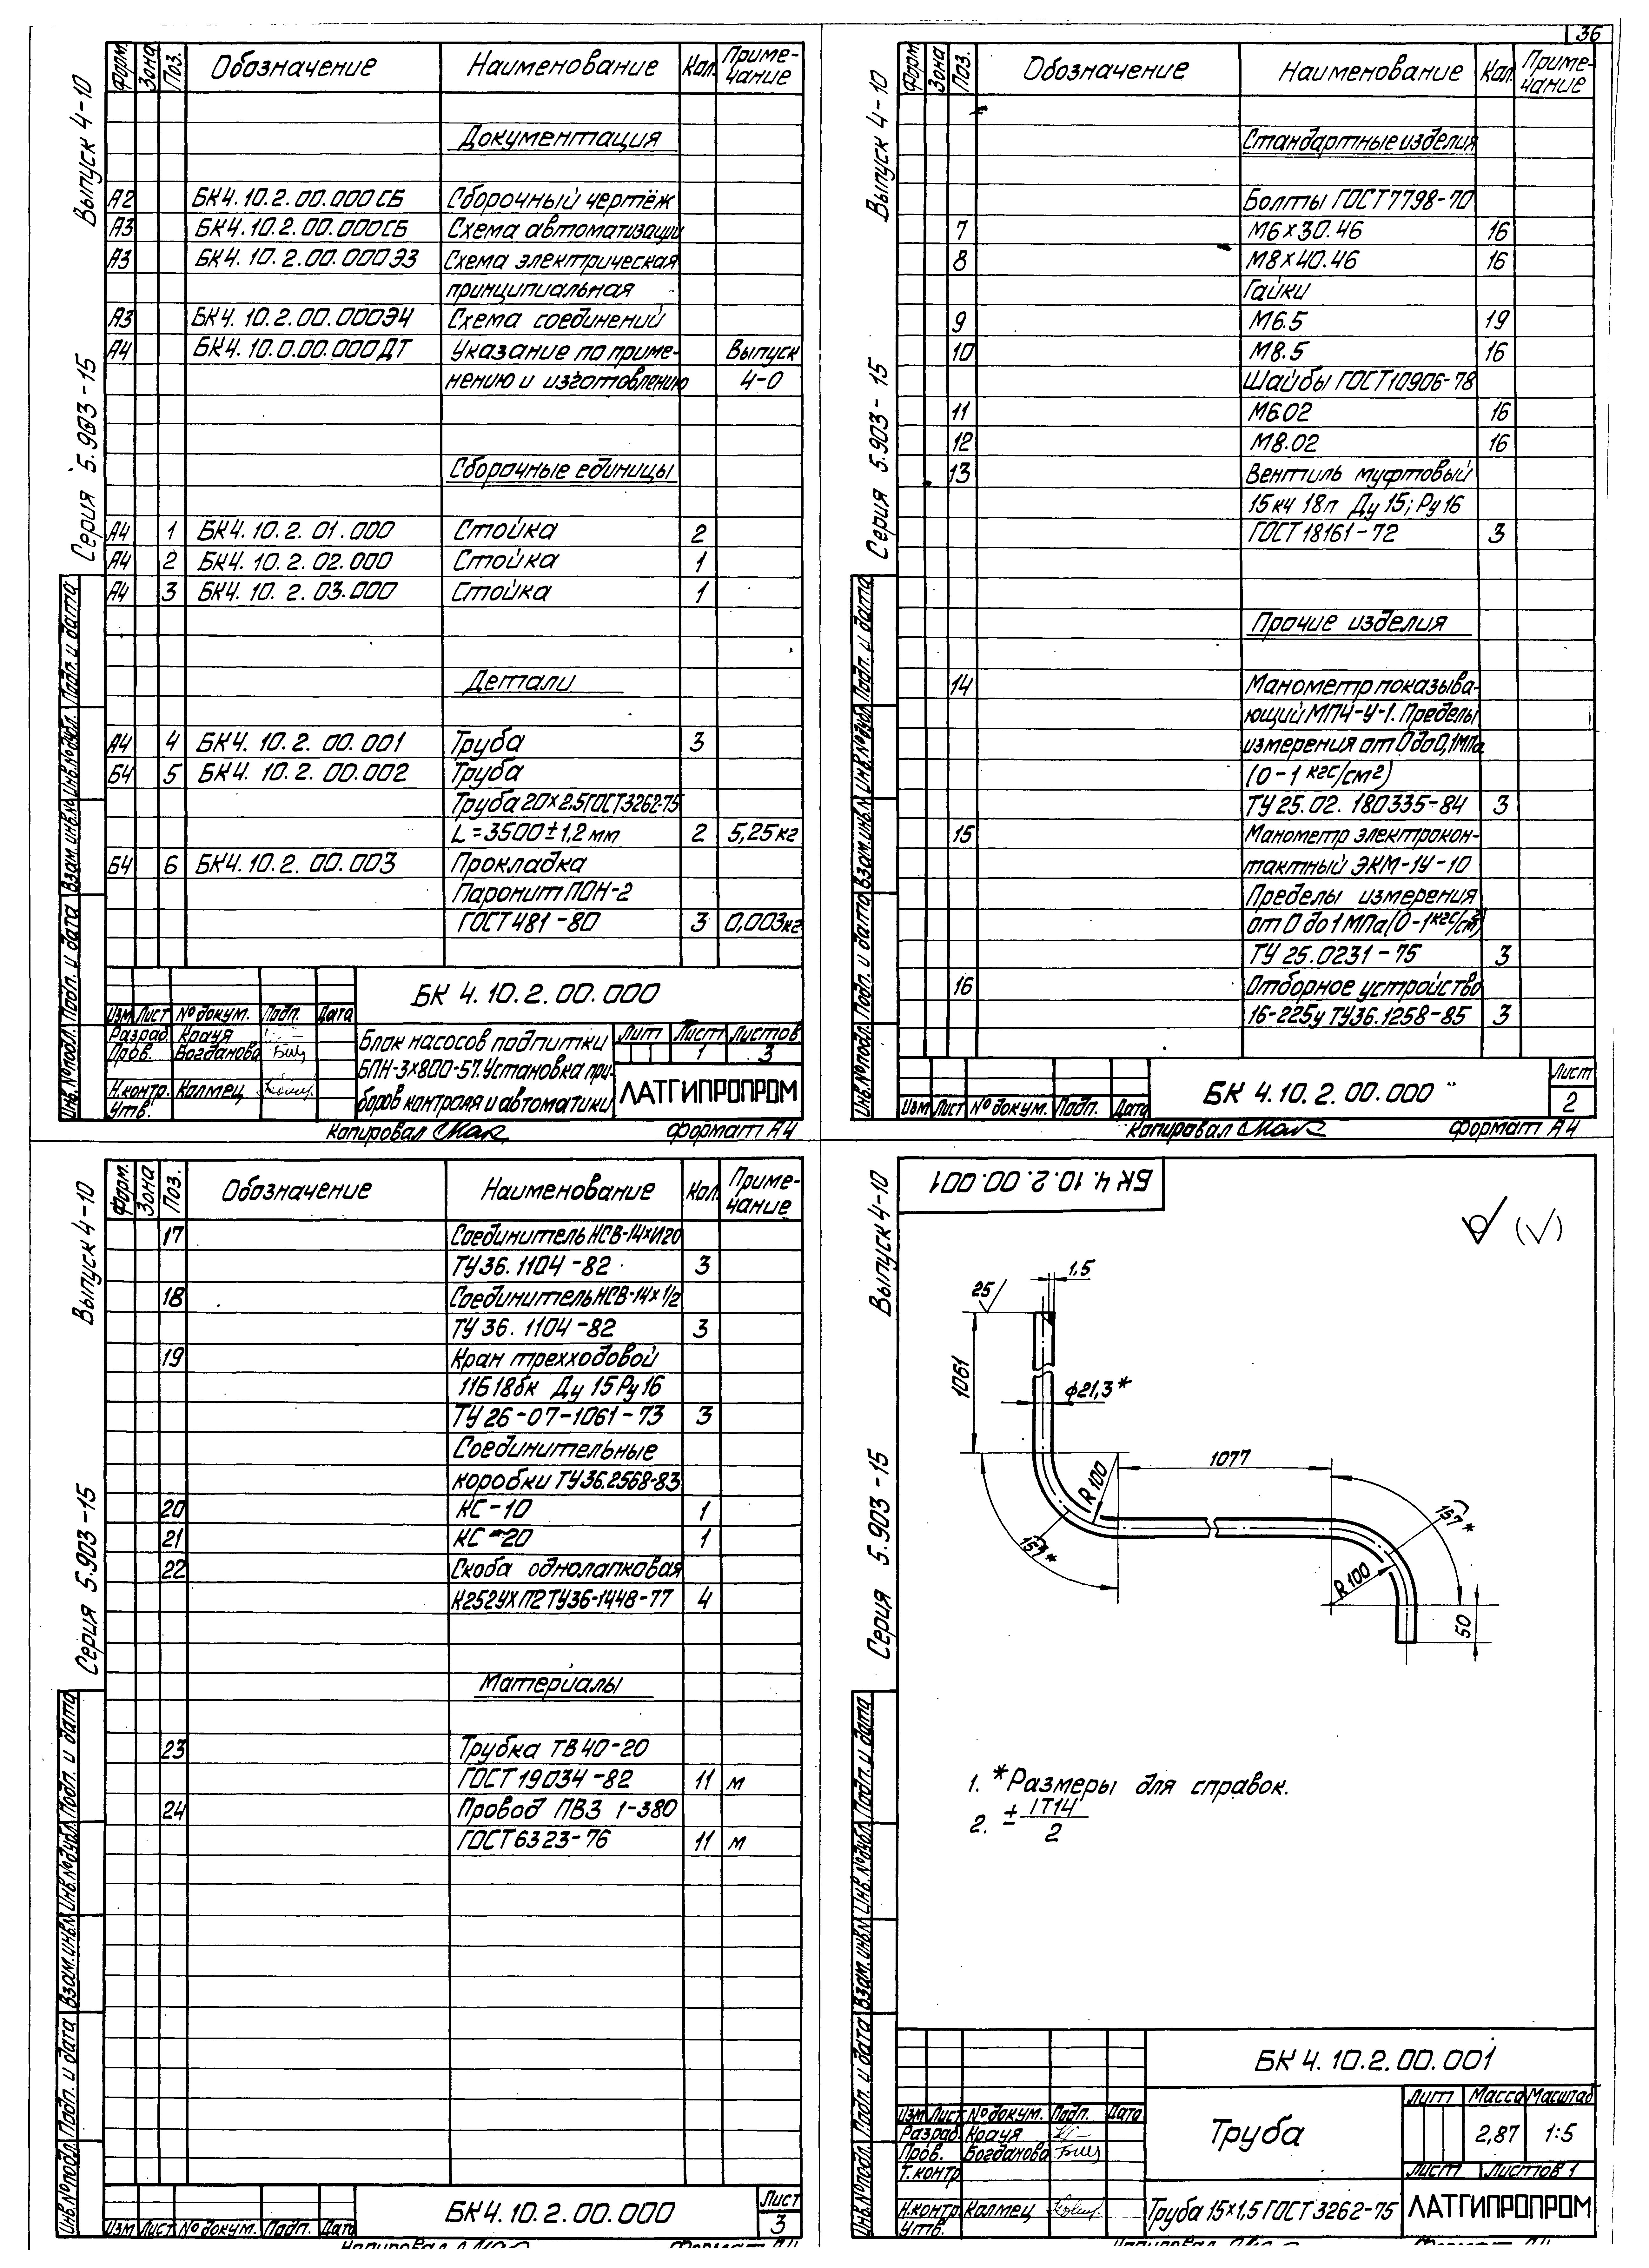 36
Выпуск 4-10
Серия 5.903-15
Форм. Зона Поз. Обозначение Наименование Кол. Приме-
чание
Документация
А2 БК4.10.2.00.000СБ Сборочный чертёж
А3 БК4.10.2.00.000СБ Схема автоматизации
А3 БК4.10.2.00.000ЭЗ Схема электрическая
принципиальная
А3 БК4.10.2.00.000Э4 Схема соединений
А4 БК4.10.0.00.000ДТ Указание по приме- Выпуск
нению и изготовлению 4-0
Сборочные единицы
А4 1 БК4.10.2.01.000 Стойка 2
А4 2 БК4.10.2.02.000 Стойка 1
А4 3 БК4.10.2.03.000 Стойка 1
Детали
А4 4 БК4.10.2.00.001 Труба 3
Б4 5 БК4.10.2.00.002 Труба
Труба 20×2.5 ГОСТ3262-75
L=3500±1,2 мм 2 5,25кг
Б4 6 БК4.10.2.00.003 Прокладка
Паронит ПОН-2
ГОСТ 481-80 3 0,003кг
Инв.№подл. Подп. и дата Взам.инв.№ Инв.№дубл. Подп. и дата
БК 4.10.2.00.000
Изм Лист №докум. Подп. Дата
Разраб. Крауя
Пров. Богданова
Н.контр. Калмец
Утв.
Блок насосов подпитки
БПН-3×800-57. Установка при-
боров контроля и автоматики
Лит Лист Листов
1 3
ЛАТГИПРОПРОМ
Копировал Формат А4
Выпуск 4-10
Серия 5.903-15
Форм. Зона Поз. Обозначение Наименование Кол. Приме-
чание
Стандартные изделия
Болты ГОСТ7798-70
7 М6×30.46 16
8 М8×40.46 16
Гайки
9 М6.5 19
10 М8.5 16
Шайбы ГОСТ10906-78
11 М6.02 16
12 М8.02 16
13 Вентиль муфтовый
15кч 18п Ду 15; Ру16
ГОСТ 18161-72 3
Прочие изделия
14 Манометр показыва-
ющий МП4-У-1. Пределы
измерения от 0 до 0,1МПа
(0-1 кгс/см²)
ТУ 25.02.180335-84 3
15 Манометр электрокон-
тактный ЭКМ-1У-10
Пределы измерения
от 0 до 1МПа (0-1кгс/см²)
ТУ 25.0231-75 3
16 Отборное устройство
16-225у ТУ36.1258-85 3
Инв.№подл. Подп. и дата Взам.инв.№ Инв.№дубл. Подп. и дата
Изм Лист №докум. Подп. Дата
БК 4.10.2.00.000
Лист
2
Копировал Формат А4
Выпуск 4-10
Серия 5.903-15
Форм. Зона Поз. Обозначение Наименование Кол. Приме-
чание
17 Соединитель НСВ-14×И20
ТУ36.1104-82 3
18 Соединитель НСВ-14×1/2
ТУ 36.1104-82 3
19 Кран трехходовой
11Б18бк Ду 15 Ру16
ТУ 26-07-1061-73 3
Соединительные
коробки ТУ36.2568-83
20 КС-10 1
21 КС-20 1
22 Скоба однолапковая
К252УХЛ2 ТУ36-1448-77 4
Материалы
23 Трубка ТВ40-20
ГОСТ 19034-82 11 м
24 Провод ПВ3 1-380
ГОСТ6323-76 11 м
Инв.№подл. Подп. и дата Взам.инв.№ Инв.№дубл. Подп. и дата
Изм Лист №докум. Подп. Дата
БК4.10.2.00.000
Лист
3
Копировал Формат А4
БК 4.10.2.00.001
Выпуск 4-10
Серия 5.903-15
25
1,5
1061
ϕ21,3*
R100
157*
1077
157*
R100
50
1. *Размеры для справок.
2. ± IT14
2
Инв.№подл. Подп. и дата Взам.инв.№ Инв.№дубл. Подп. и дата
БК 4.10.2.00.001
Изм Лист №докум. Подп. Дата
Разраб. Крауя
Пров. Богданова
Т.контр
Н.контр. Калмец
Утв.
Труба
Лит Масса Масштаб
2,87 1:5
Лист Листов 1
Труба 15×1,5 ГОСТ 3262-75
ЛАТГИПРОПРОМ
Копировал Формат А4